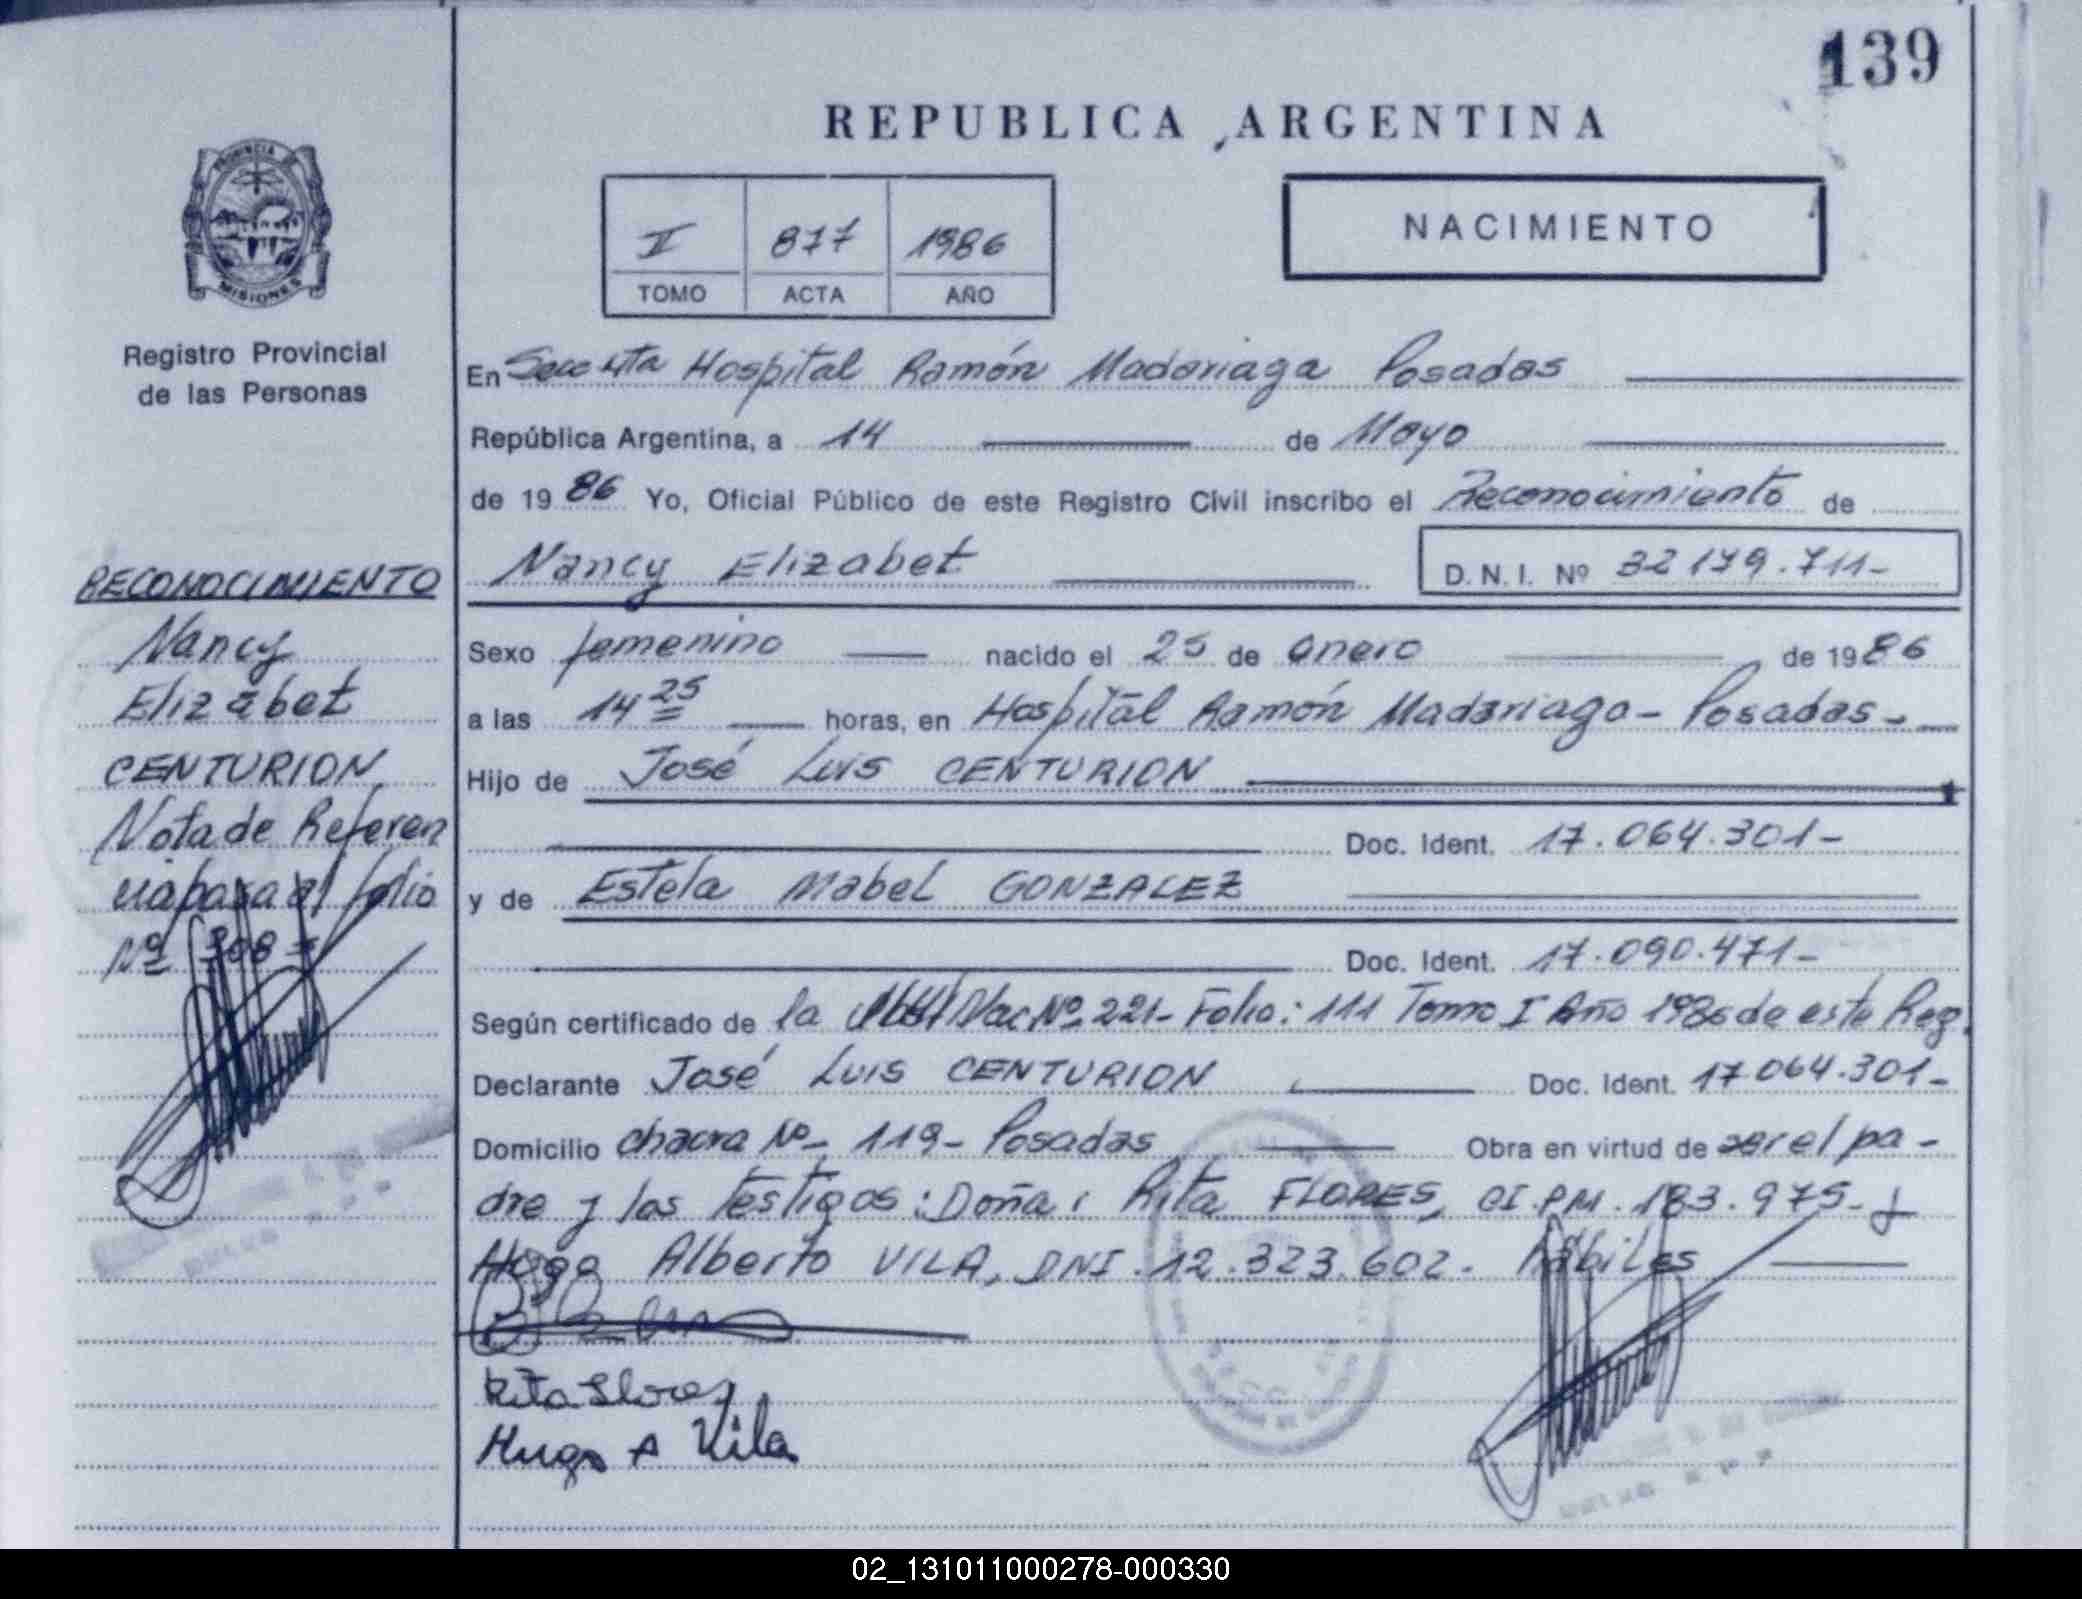 139
REPUBLICA ARGENTINA
PROVINCIA DE
MISIONES
Registro Provincial
de las Personas
II 877 1986
TOMO ACTA AÑO
NACIMIENTO
En Secc 4ta Hospital Ramón Madariaga Posadas
República Argentina, a 14 de Mayo
de 1986 Yo, Oficial Público de este Registro Civil inscribo el Reconocimiento de
Nancy Elizabet D. N. I. Nº 32179.711-
Sexo femenino nacido el 25 de enero de 1986
a las 14 25 horas, en Hospital Ramón Madariaga - Posadas -
Hijo de José Luis CENTURION
Doc. Ident. 17.064.301-
y de Estela Mabel GONZALEZ
Doc. Ident. 17.090.471-
Según certificado de la Nac Nº 221- Folio: 111 Tomo I Año 1986 de este Reg.
Declarante José Luis CENTURION Doc. Ident. 17064.301-
Domicilio chacra Nº- 119- Posadas Obra en virtud de ser el pa-
dre y los testigos: Doña: Rita FLORES, CI.PM. 183.975- y
Hugo Alberto VILA, DNI. 12.323.602. hábiles
Rita Flores
Hugo A Vila
RECONOCIMIENTO
Nancy
Elizabet
CENTURION
Nota de Referen
cia pasa al folio
Nº 308
02_131011000278-000330